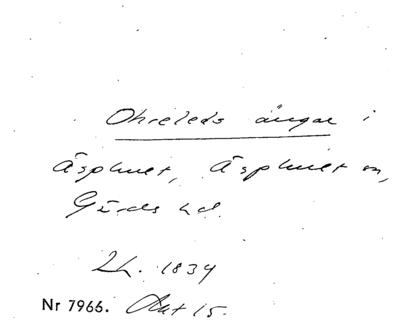 Ohreleds ängar i
Äsphult, Äsphult sn,
Gärds hd.
Lh. 1834
Nr 7966. Akt 15.